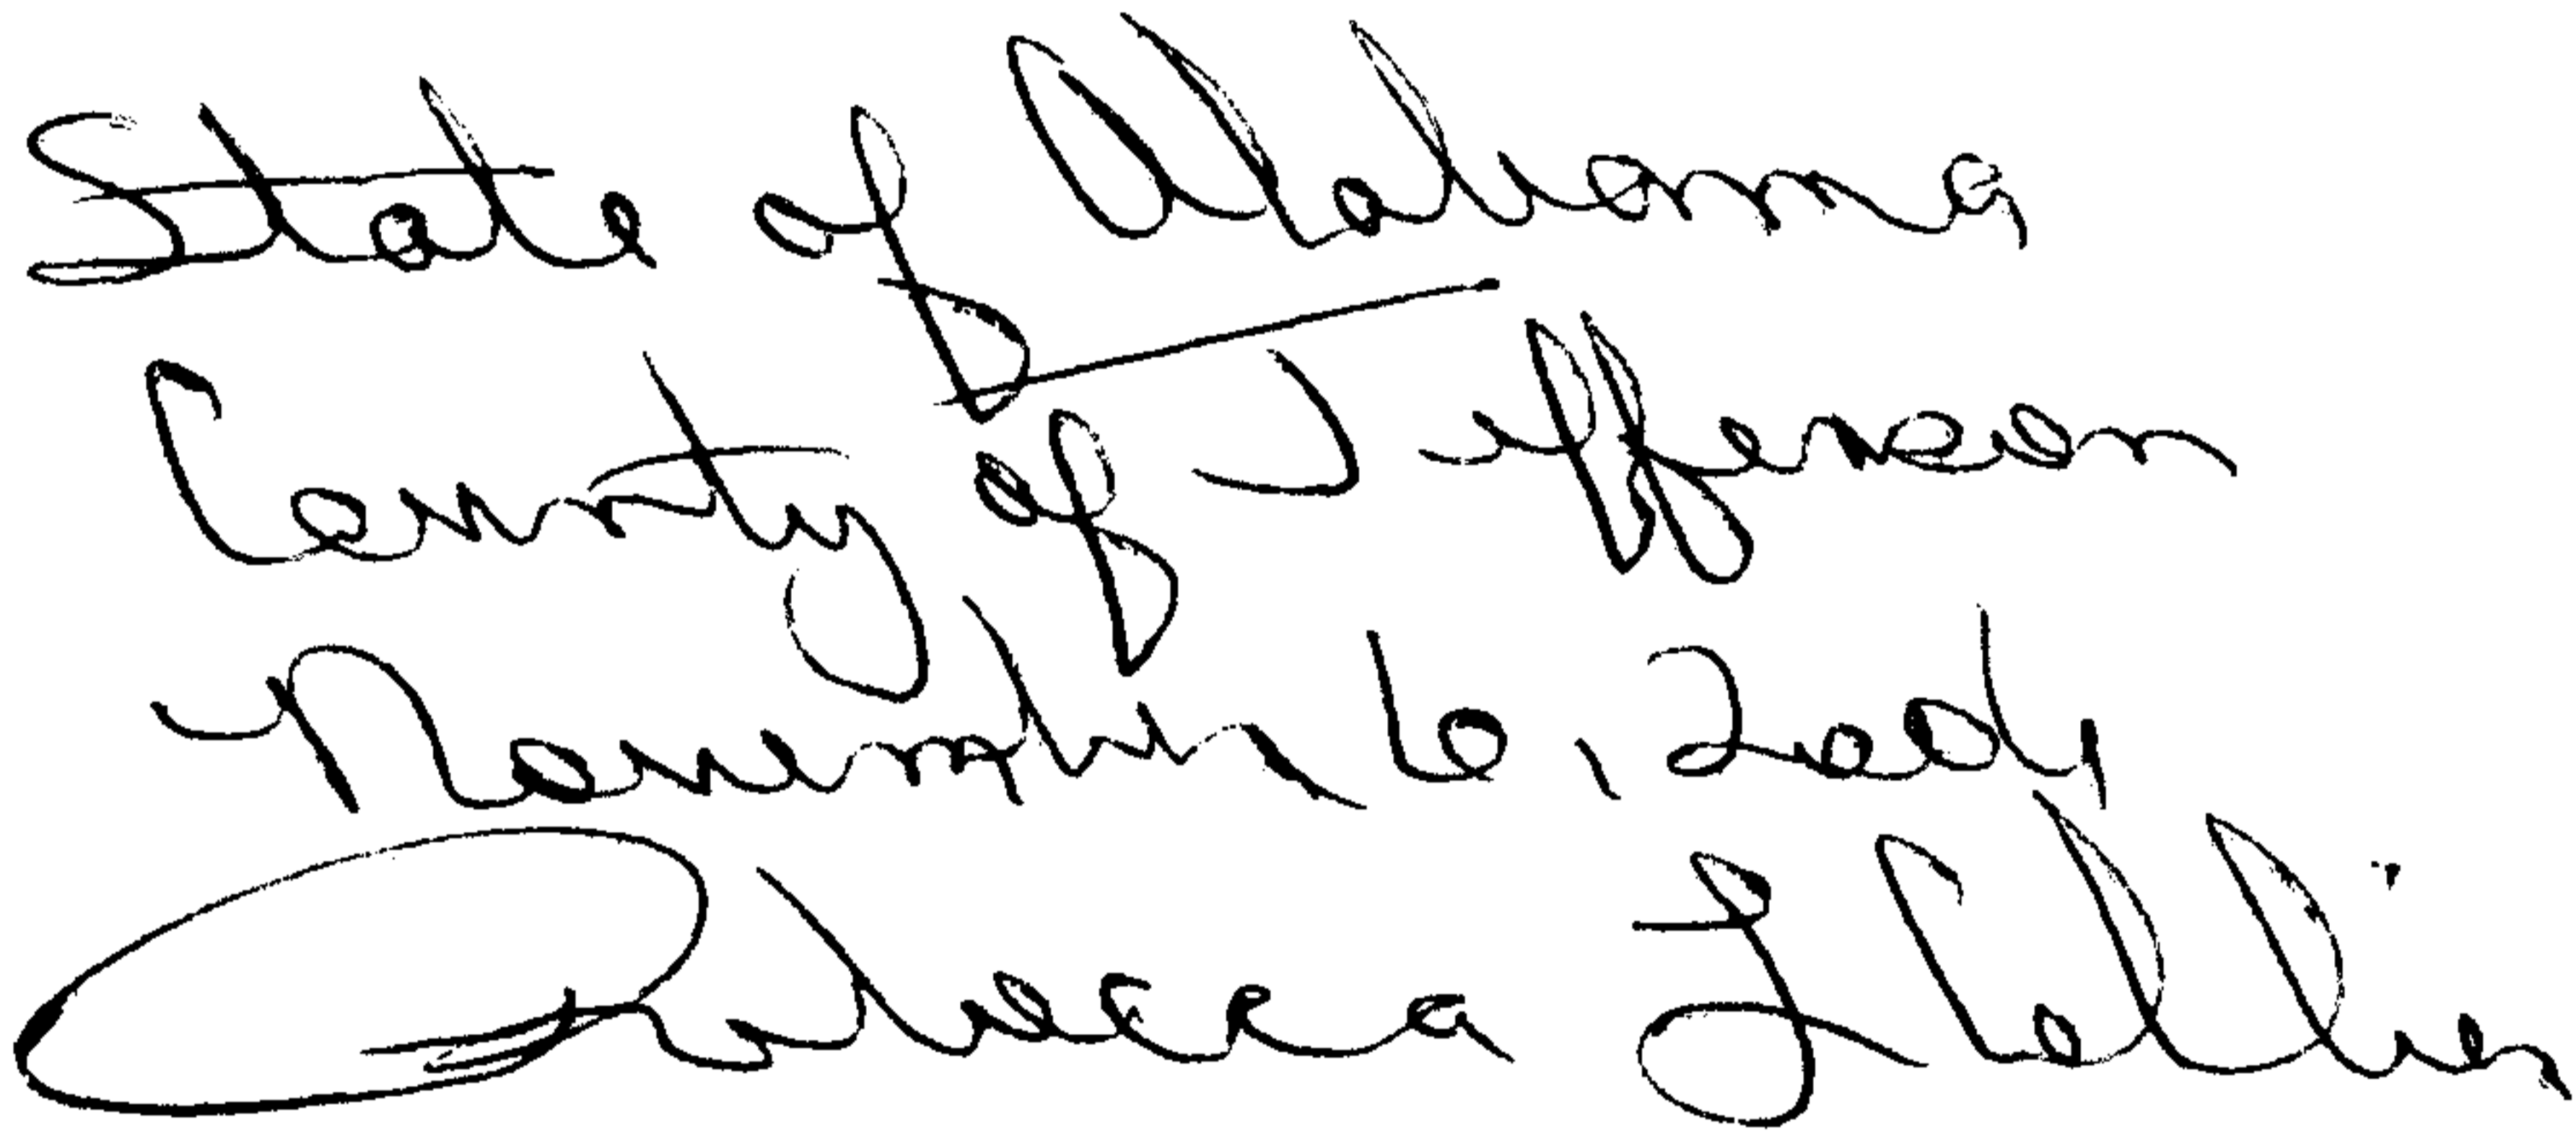 State of Alabama
County of Jefferson
November 6, 2004
Rebecca L Collier